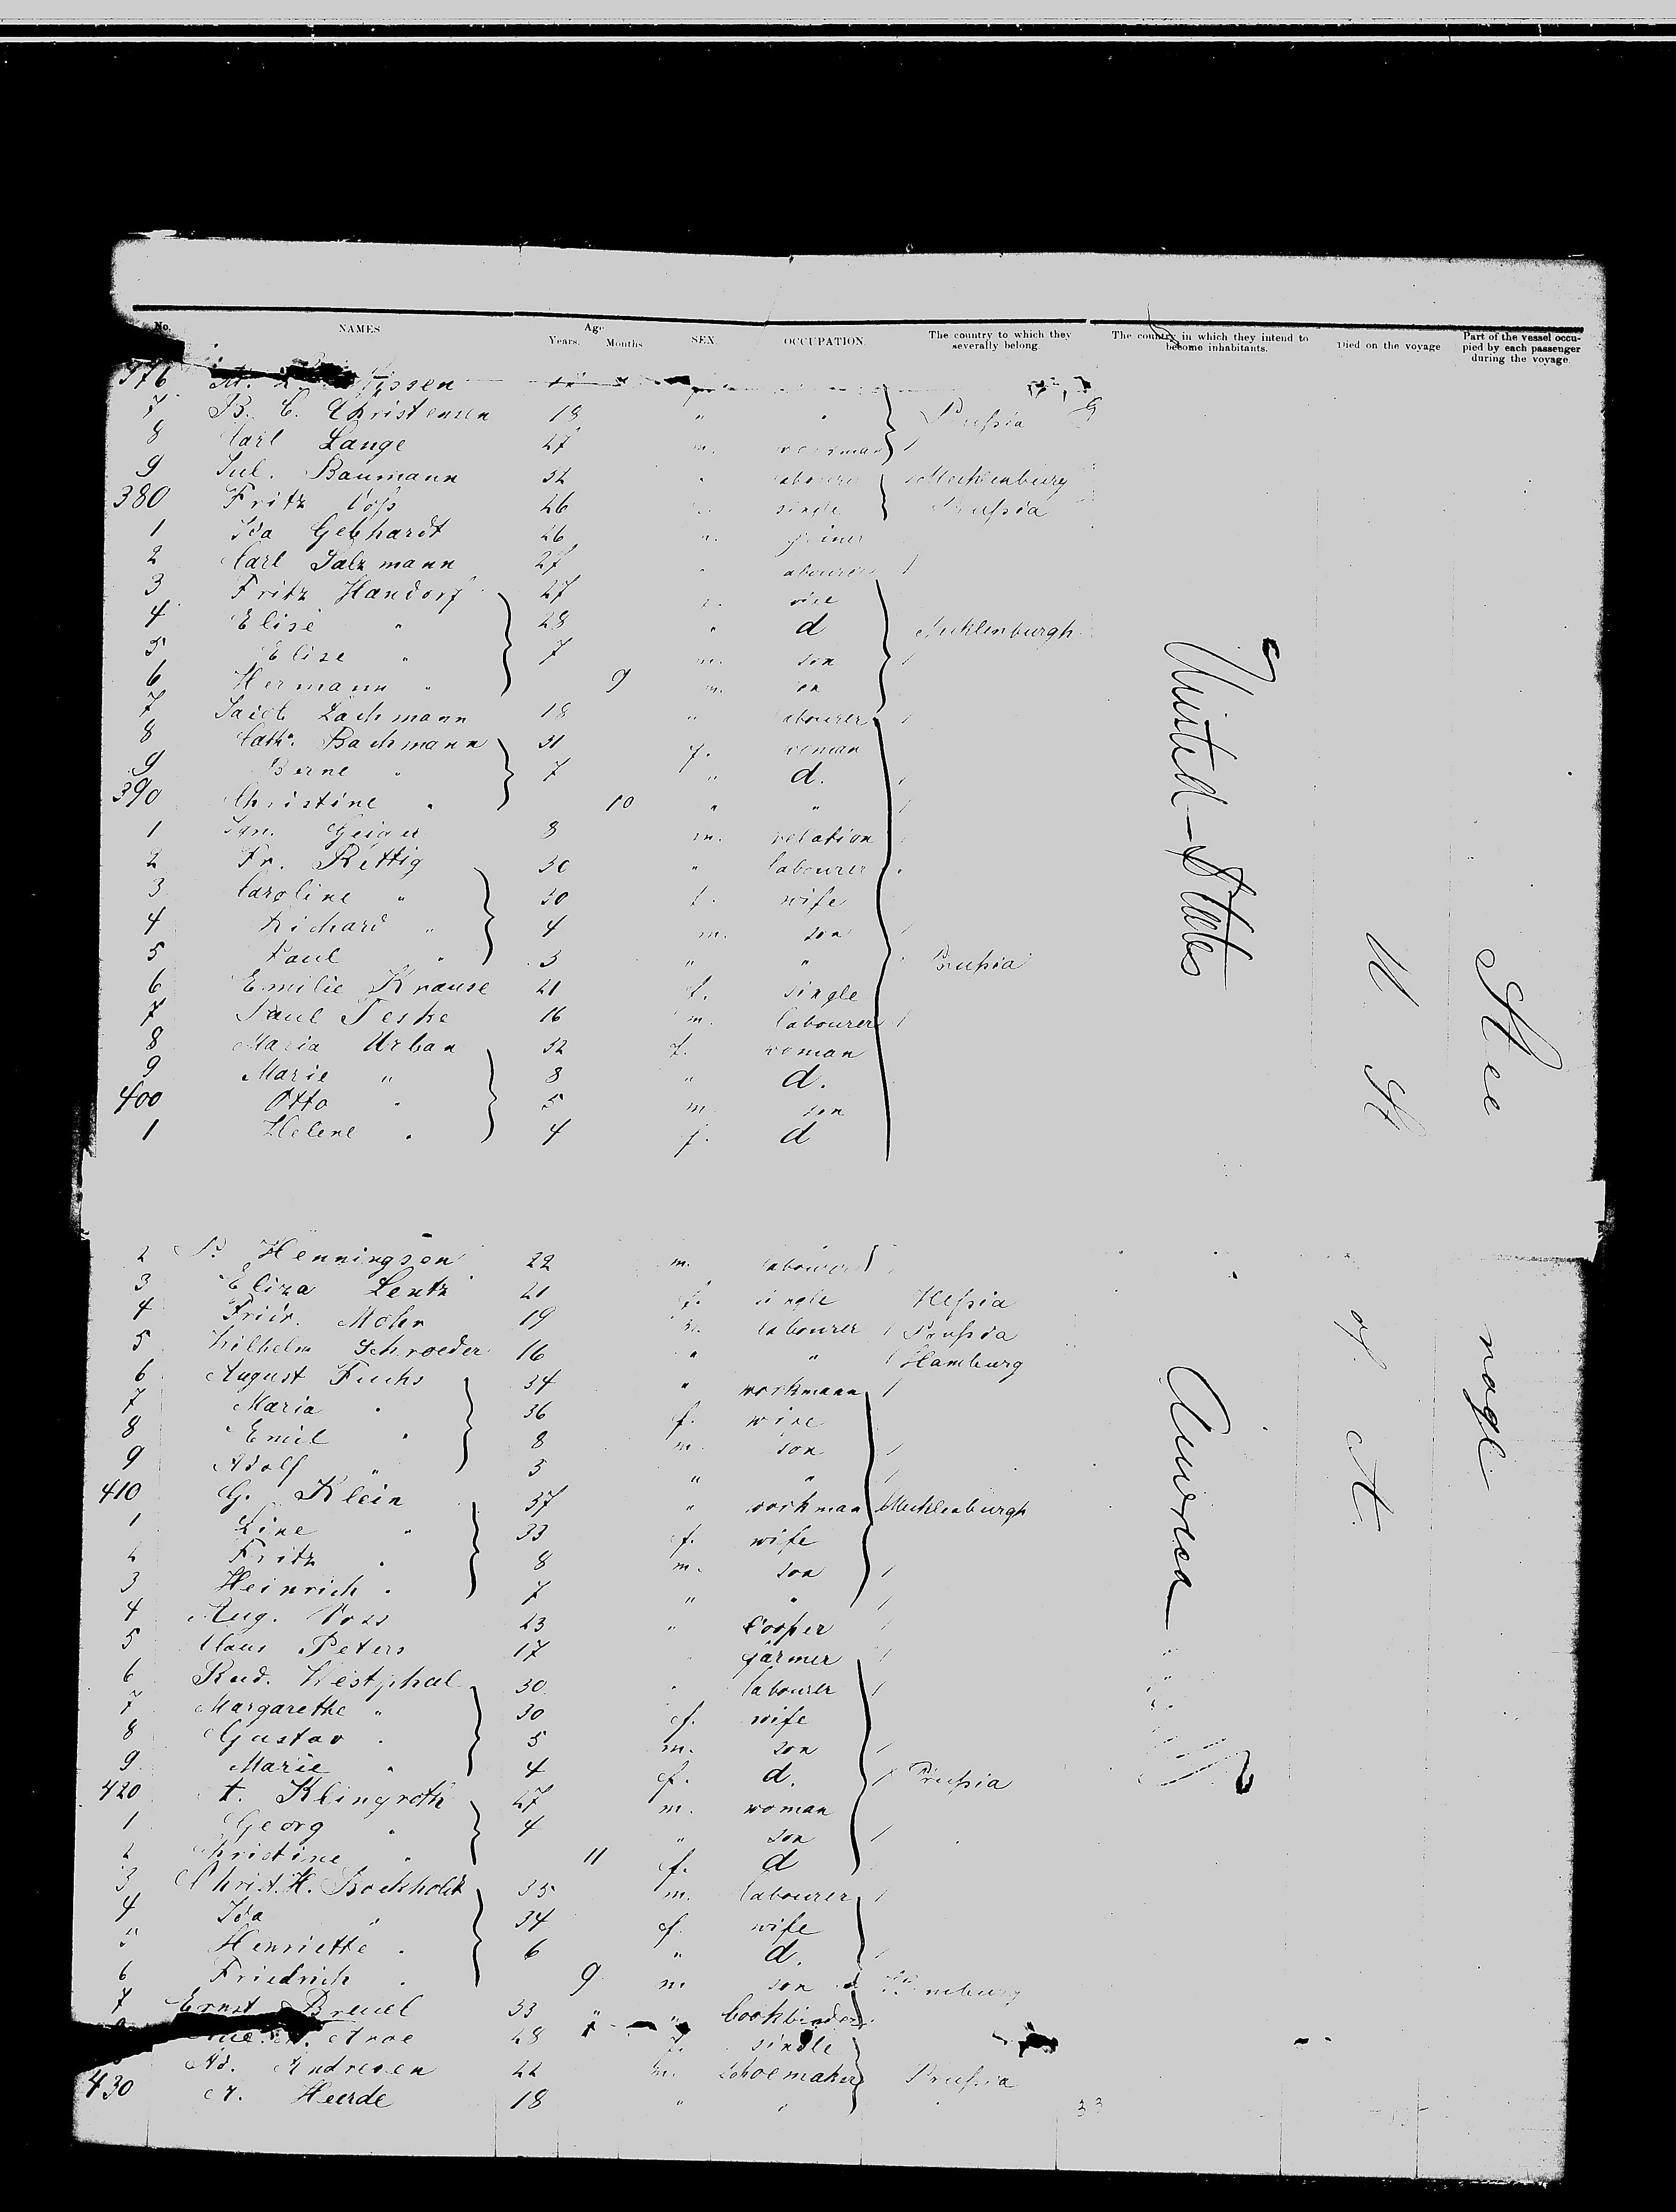 No. NAMES Age Years. Months SEX OCCUPATION The country to which they severally belong The country in which they intend to become inhabitants. Died on the voyage Part of the vessel occupied by each passenger during the voyage.
376
7 B. C. Christensen 18 " " Prußia
8 Carl Lange 27 m. workman
9 Jul. Baumann 32 " labourer Mecklenburg
380 Fritz Voß 26 single Prußia
1 Ida Gebhardt 26 " joiner
2 Carl Salzmann 27 " labourer
3 Fritz Handorf 27
4 Elise " 28 " d Mecklenburgh
5 Elise " 7 m. son
6 Hermann " 9 m. son
7 Lachmann 18 " labourer
8 Cath. Bachmann 31 f. woman
9 Berne " 7 " d.
390 Christine " 10 " "
1 Ign. Geiger 8 m. relation
2 Fr. Rettig 30 " labourer
3 Caroline " 30 f. wife
4 Richard " 4 m. son
5 Paul " 3 " " Prußia
6 Emilie Krause 21 f. single
7 Paul Teske 16 m. labourer
8 Maria Urban 32 f. woman
9 Marie " 8 " d.
400 Otto " 5 m son
1 Helene " 4 f. d
United-States
2 P. Henningsen 22 m. labourer
3 Eliza Lentz 21 f. single Heßia
4 Friedr. Mohr 19 m. labourer Prußia
5 Wilhelm Schroeder 16 " " Hamburg
6 August Fuchs 34 " workmann
7 Maria " 36 f. wife
8 Emil " 8 m. son
9 Adolf " 3 " "
410 G. Klein 37 " workman Mecklenburgh
1 Line " 33 f. wife
2 Fritz " 8 m. son
3 Heinrich " 7 " "
4 Aug. Voss 23 " Cooper
5 Claus Peters 17 " farmer
6 Rud. Westphal 30 " labourer
7 Margarethe " 30 f. wife
8 Gustav " 5 m. son
9 Marie " 4 f. d. Prußia
420 t. Klingroth 27 m. woman
1 Georg " 4 " son
2 Christine " 11 f. d
3 Christ. H. Bockholdt 35 m. labourer
4 Ida " 34 f. wife
5 Henriette " 6 " d.
6 Friedrich " 9 m. son
7 Ernst Breuel 33 " " bookbinder
28 f. single
Ad. Andresen 22 m. schoemaker Prußia
430 A. Heerde 18 " " "
America
U St
of A.
Stee
rage